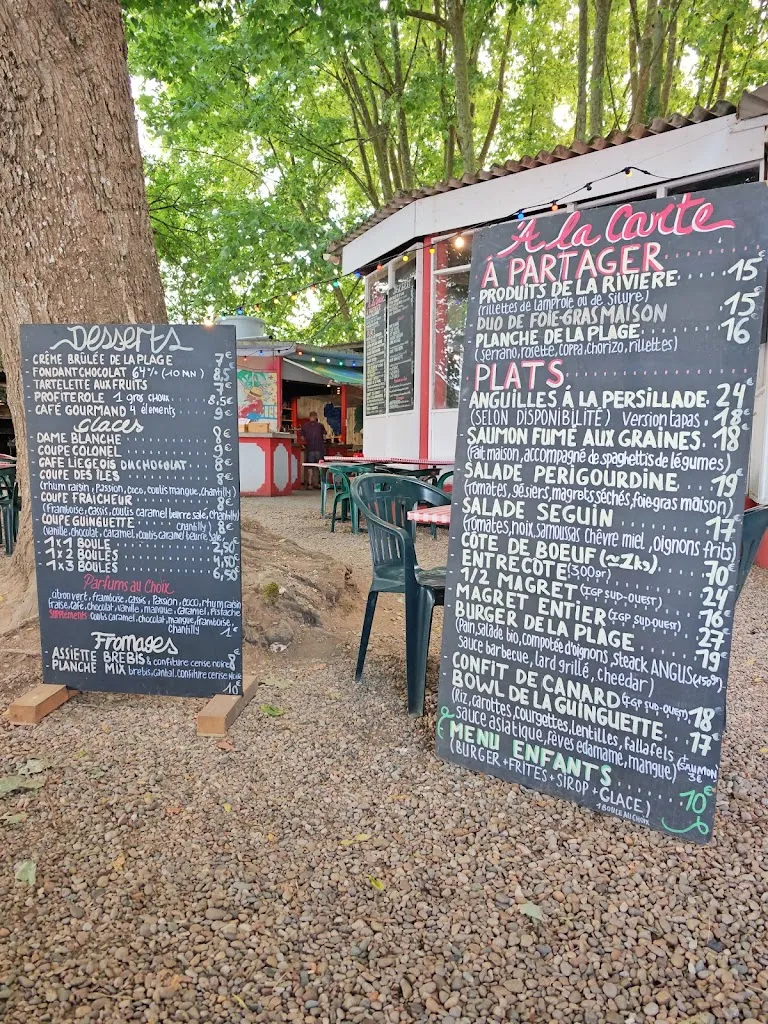 Desserts
CRÈME BRÛLÉE DE LA PLAGE 7€
FONDANT CHOCOLAT 64% (10 MN) 8,5€
TARTELETTE AUX FRUITS 7€
PROFITEROLE 1 gros choux 8,5€
CAFÉ GOURMAND 4 éléments 9€
Glaces
DAME BLANCHE 8€
COUPE COLONEL 9€
CAFÉ LIÉGEOIS OU CHOCOLAT 8€
COUPE DES ÎLES 8€
(rhum raisin, passion, coco, coulis mangue, chantilly)
COUPE FRAICHEUR 8€
(Framboise, cassis, coulis caramel beurre salé, chantilly)
COUPE GUINGUETTE chantilly 8€
(Vanille, chocolat, caramel, coulis caramel beurre salé,
1 x 1 BOULE 2,50€
1 x 2 BOULES 4,50€
1 x 3 BOULES 6,50€
Parfums au choix
citron vert, framboise, cassis, passion, coco, rhum raisin
fraise, café, chocolat, vanille, mangue, caramel, pistache
Suppléments coulis caramel, chocolat, mangue, framboise,
Chantilly 1€
Fromages
ASSIETTE BREBIS & confiture cerise noire 8€
PLANCHE MIX brebis, cantal, confiture cerise noire
10€
À la Carte
À PARTAGER
PRODUITS DE LA RIVIÈRE 15€
(rillettes de lamproie ou de silure)
DUO DE FOIE-GRAS MAISON 15€
PLANCHE DE LA PLAGE 16€
(serrano, rosette, coppa, chorizo, rillettes)
PLATS
ANGUILLES À LA PERSILLADE 24€
(SELON DISPONIBILITÉ) Version tapas 18€
SAUMON FUMÉ AUX GRAINES 18€
(Fait maison, accompagné de spaghettis de légumes)
SALADE PÉRIGOURDINE 19€
(tomates, gésiers, magrets séchés, foie gras maison)
SALADE SEGUIN 17€
(tomates, noix, samoussas chèvre miel, oignons frits)
CÔTE DE BOEUF (≃1kg) 70€
ENTRECÔTE (300gr) 24€
1/2 MAGRET (IGP SUD-OUEST) 16€
MAGRET ENTIER (IGP SUD-OUEST) 27€
BURGER DE LA PLAGE 19€
(Pain, salade bio, compotée d'oignons, steack ANGUS (150gr)
sauce barbecue, lard grillé, cheedar)
CONFIT DE CANARD (IGP SUD-OUEST) 18€
BOWL DE LA GUINGUETTE 17€
(Riz, carottes, courgettes, lentilles, fallafels
sauce asiatique, fèves edamame, mangue) (SAUMON 3€
MENU ENFANTS
(BURGER + FRITES + SIROP + GLACE) 10€
1 BOULE AU CHOIX